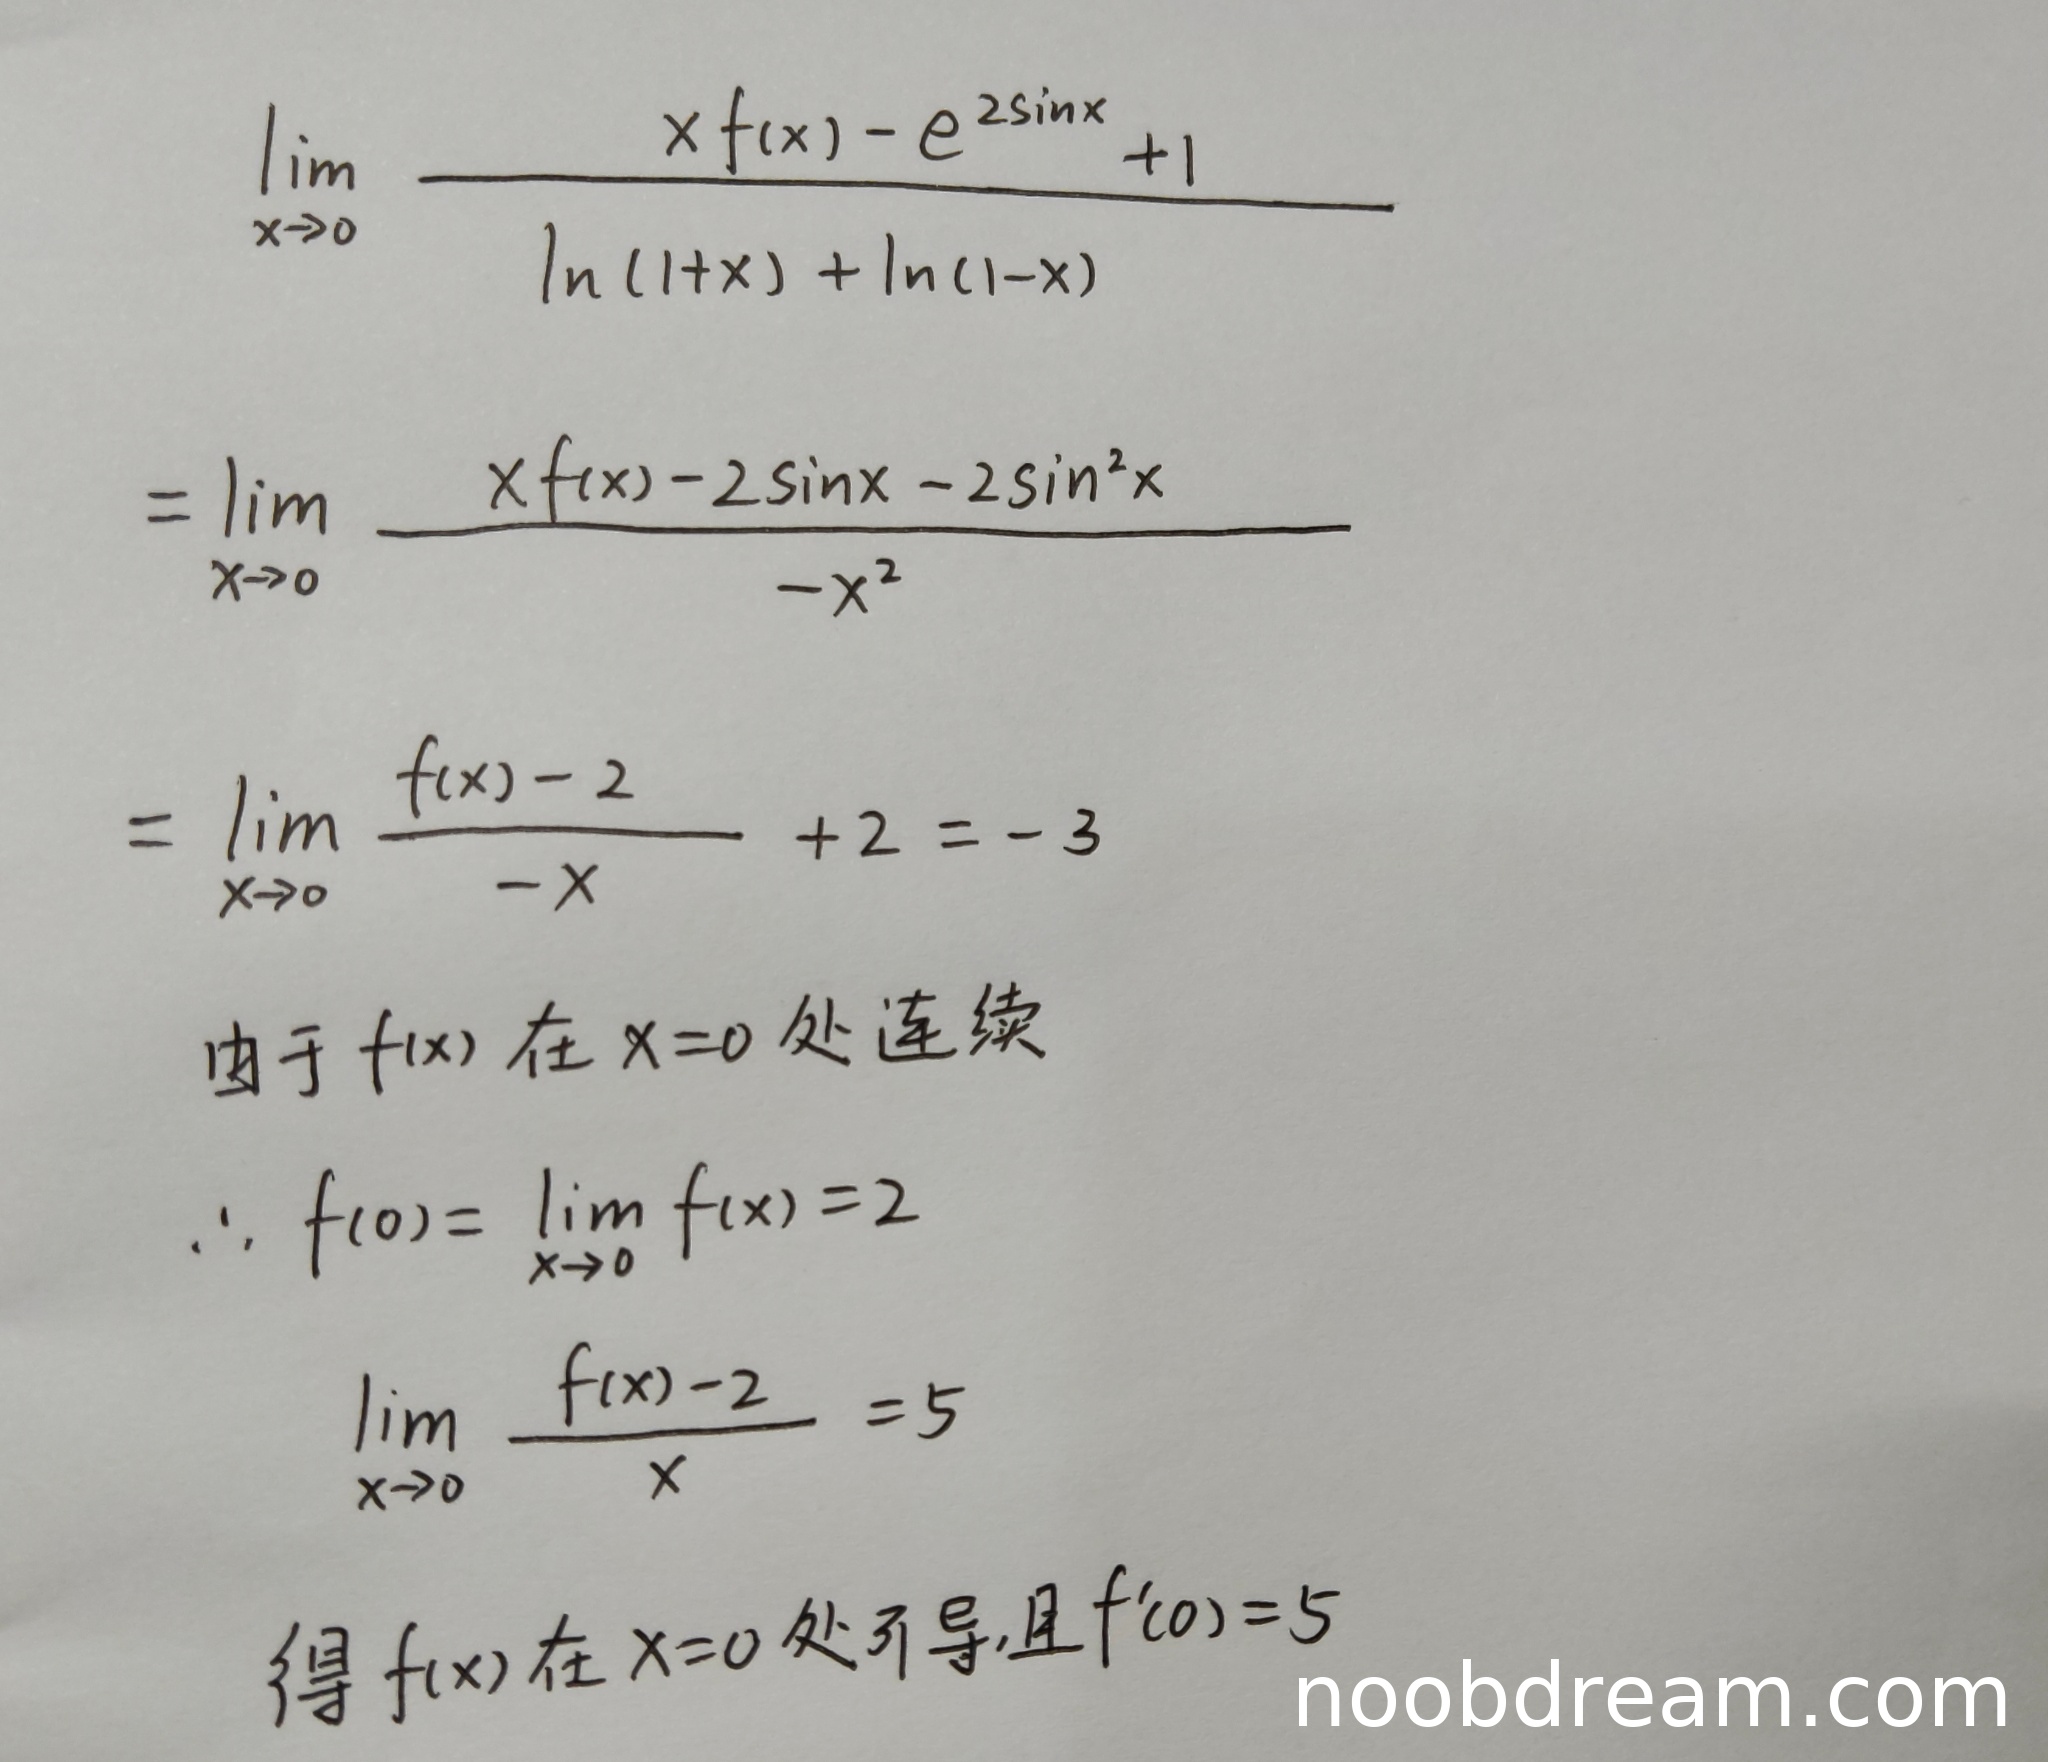 lim x→0 (x f(x) - e^{2sinx} + 1) / (ln(1+x) + ln(1-x))
= lim x→0 (x f(x) - 2sinx - 2sin²x) / (-x²)
= lim x→0 (f(x) - 2) / (-x) + 2 = -3
由于 f(x) 在 x=0 处连续
∴ f(0) = lim x→0 f(x) = 2
lim x→0 (f(x) - 2) / x = 5
得 f(x) 在 x=0 处 导,且 f'(0) = 5
noobdream.com